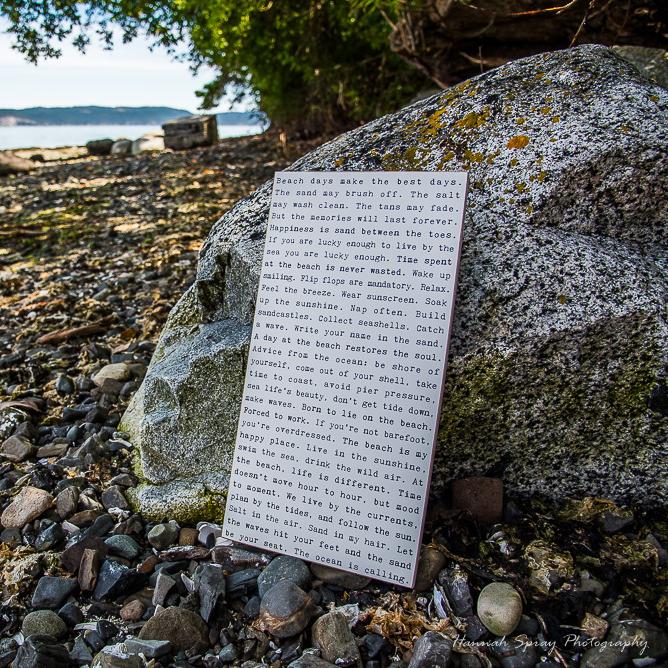 Beach days make the best days.
The sand may brush off. The salt
may wash clean. The tans may fade.
But the memories will last forever.
Happiness is sand between the toes.
If you are lucky enough to live by the
sea you are lucky enough. Time spent
at the beach is never wasted. Wake up
smiling. Flip flops are mandatory. Relax.
Feel the breeze. Wear sunscreen. Soak
up the sunshine. Nap often. Build
sandcastles. Collect seashells. Catch
a wave. Write your name in the sand.
A day at the beach restores the soul.
Advice from the ocean: be shore of
yourself, come out of your shell, take
time to coast, avoid pier pressure,
sea life's beauty, don't get tide down,
make waves. Born to lie on the beach.
Forced to work. If you're not barefoot,
you're overdressed. The beach is my
happy place. Live in the sunshine,
swim the sea, drink the wild air. At
the beach, life is different. Time
doesn't move hour to hour, but mood
to moment. We live by the currents,
plan by the tides, and follow the sun.
Salt in the air. Sand in my hair. Let
the waves hit your feet and the sand
be your seat. The ocean is calling.
Hannah Spray Photography